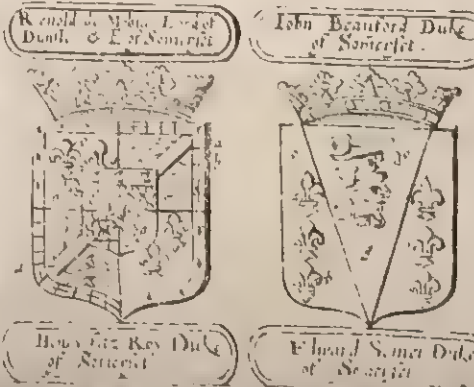 Renold de Mohun Lord of
Dunst. & E of Somerset
John Beauford Duke
of Somerset.
Henry Fitz Roy Duke
of Somerset
Edward Semer Duke
of Somerset